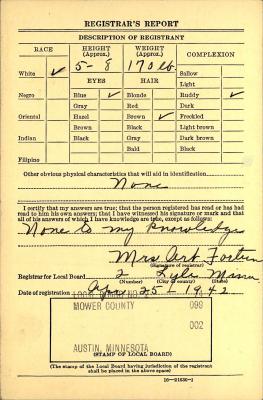 REGISTRAR'S REPORT
DESCRIPTION OF REGISTRANT
RACE
HEIGHT
(Approx.)
WEIGHT
(Approx.)
COMPLEXION
White ✓
5-8
170 lb.
Sallow
Light
EYES
HAIR
Negro
Blue ✓
Blonde
Ruddy ✓
Gray
Red
Dark
Oriental
Hazel
Brown ✓
Freckled
Brown
Black
Light brown
Indian
Black
Gray
Dark brown
Bald
Black
Filipino
Other obvious physical characteristics that will aid in identification
None
I certify that my answers are true; that the person registered has read or has had
read to him his own answers; that I have witnessed his signature or mark and that
all of his answers of which I have knowledge are true, except as follows:
None to my knowledge
Mrs. Art
(Signature of registrar)
Registrar for Local Board 2 Lyle Minn.
(Number) (City or county) (State)
Date of registration Apr. 25 - 1942
MOWER COUNTY 099
002
AUSTIN, MINNESOTA
(STAMP OF LOCAL BOARD)
(The stamp of the Local Board having jurisdiction of the registrant
shall be placed in the above space)
16—21630-1